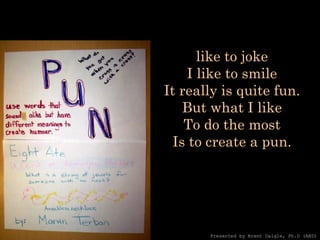 What do
you get
when you
cross a crazy
with a crazy?
PUN
use words that
sound alike but have
different meanings to
create humour."
Eight Ate
What is a strong
for
someone with no neck?
A neckless necklace
by: Marvin Terban
like to joke
I like to smile
It really is quite fun.
But what I like
To do the most
Is to create a pun.
Presented by Brent Daigle, Ph.D (ABD)